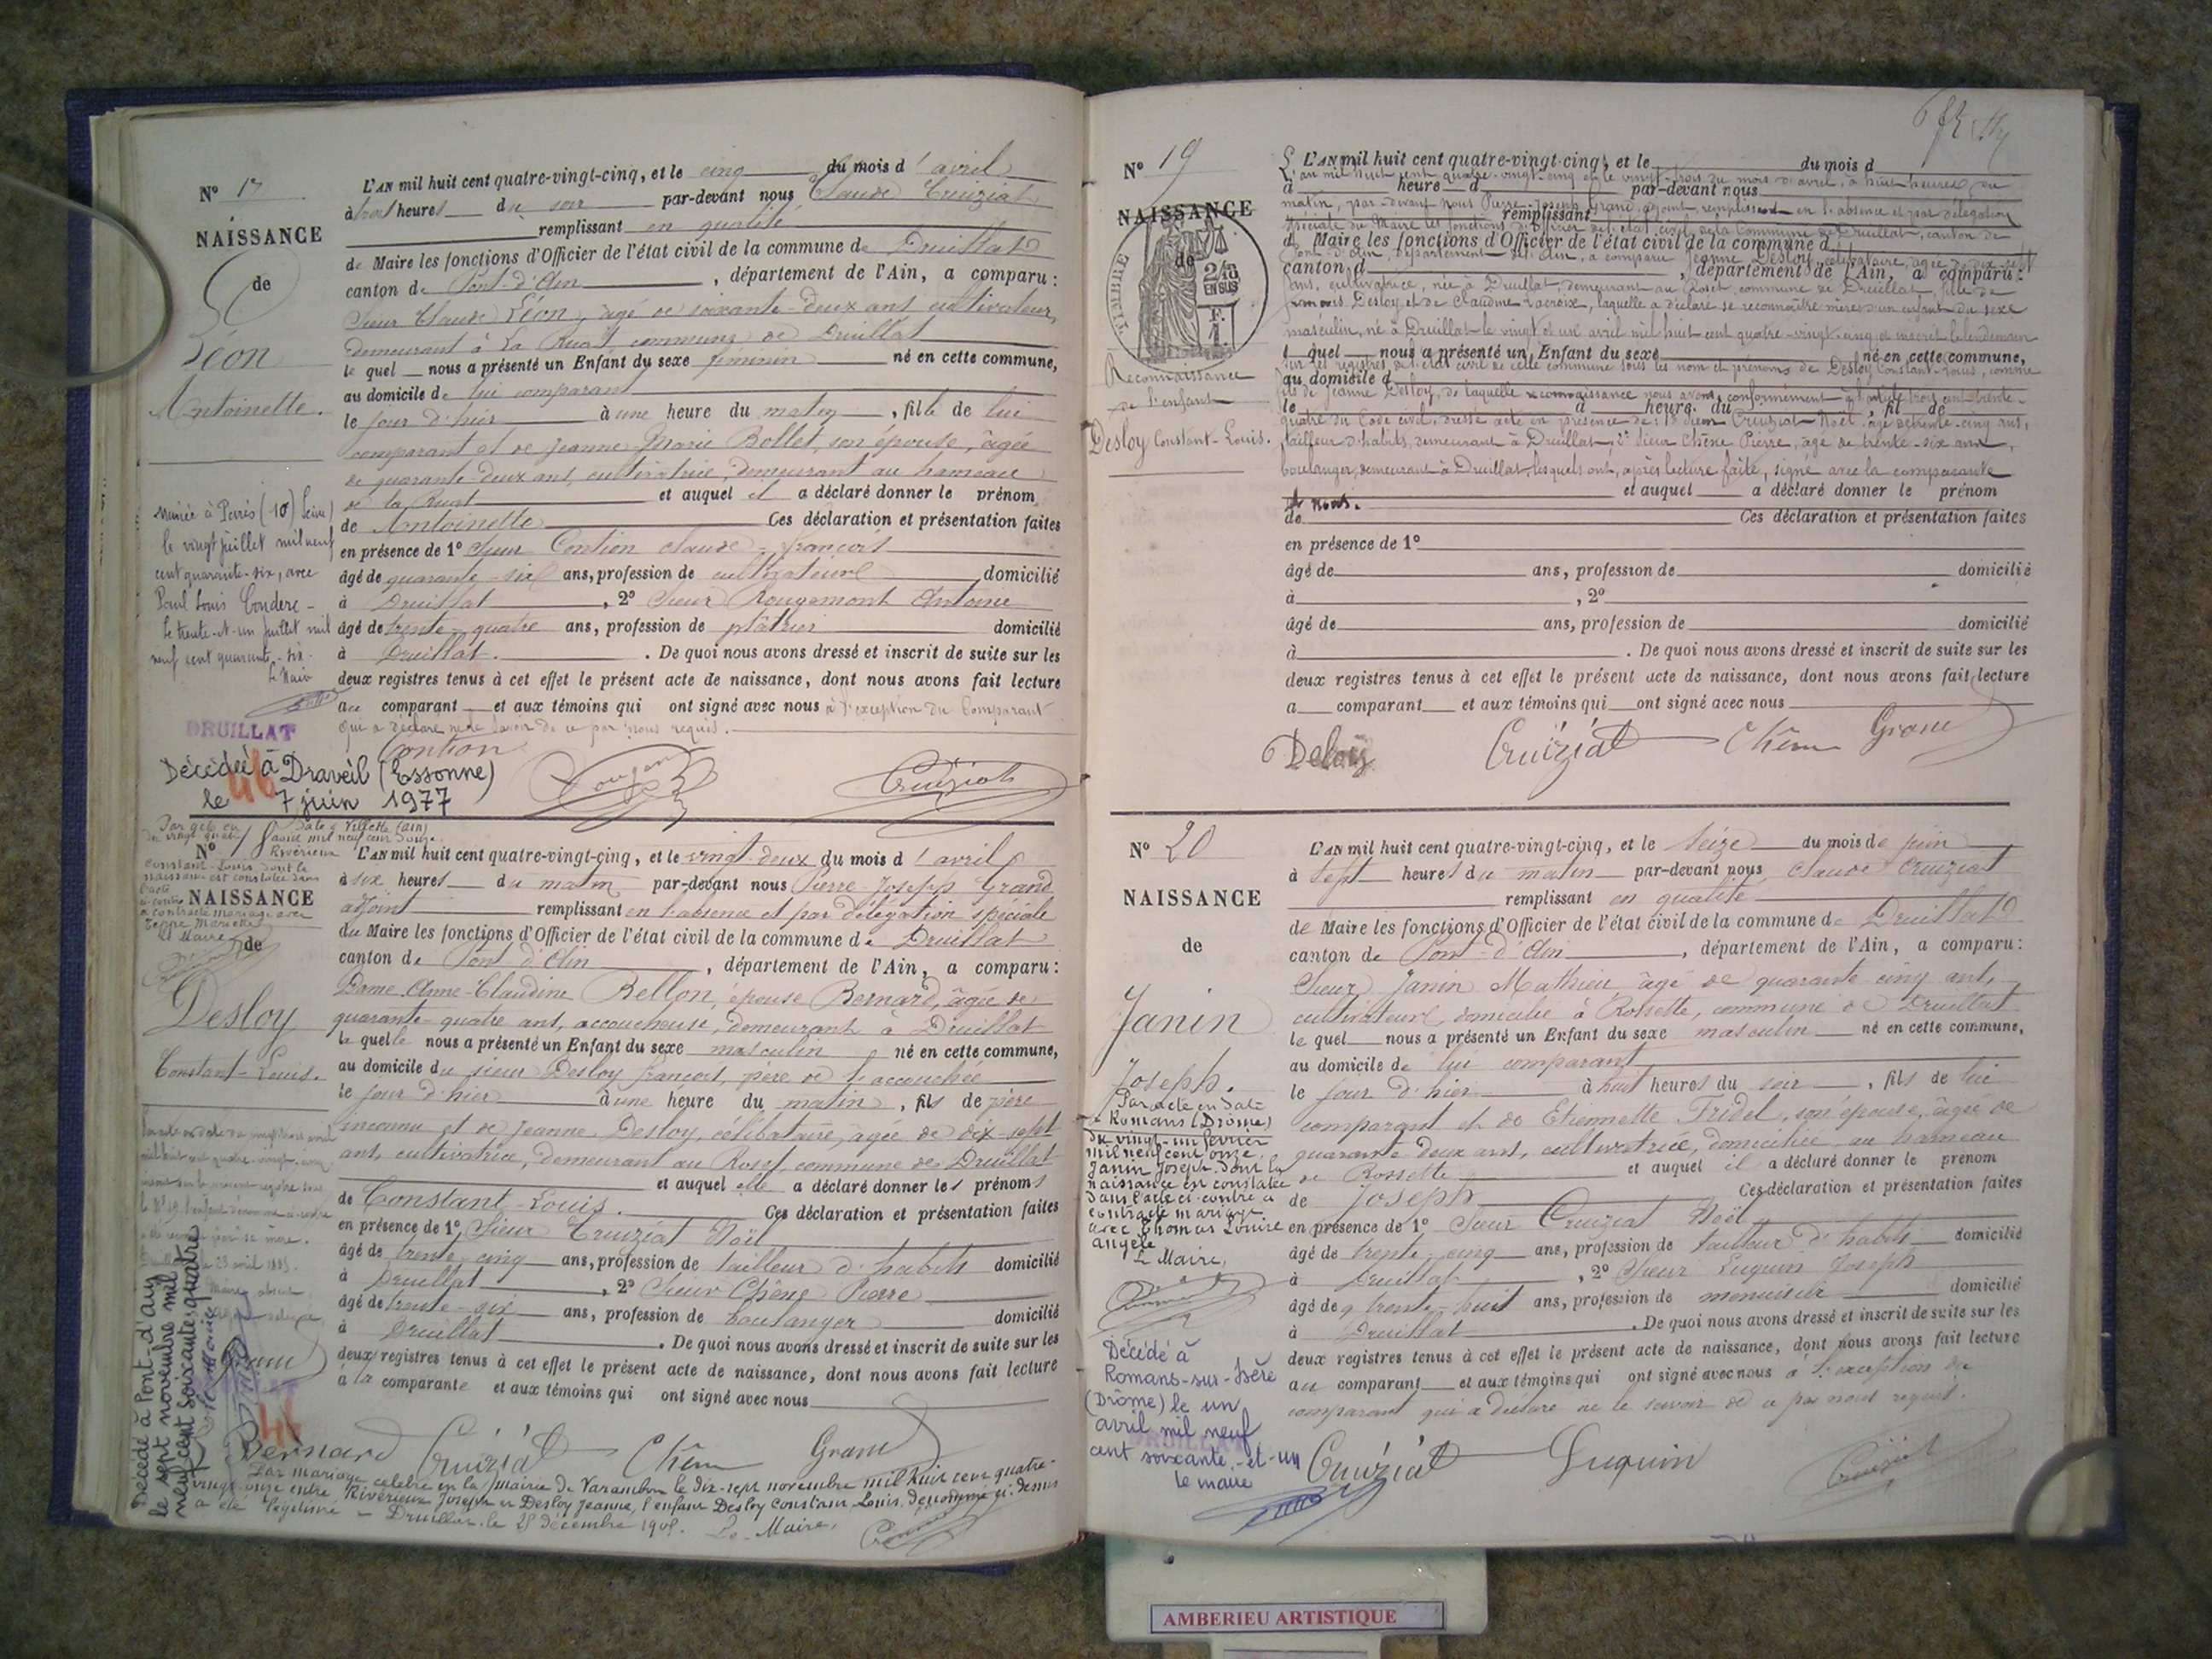 N° 17
NAISSANCE
de
Léon
Antoinette.
Mariée à Paris (10) Seine)
le vingt juillet mil neuf
cent quarante-six, avec
Paul Louis Couderc -
Le trente-et-un juillet mil
neuf cent quarante-six.
Le Maire
DRUILLAT
Décédée à Draveil (Essonne)
le 7 juin 1977
L'AN mil huit cent quatre-vingt-cinq, et le cinq du mois d'avril
à trois heures du soir par-devant nous Claude Cruiziat
remplissant en qualité
de Maire les fonctions d'Officier de l'état civil de la commune de Druillat
canton de Pont-d'Ain, département de l'Ain, a comparu :
Sieur Claude Léon, âgé de soixante-deux ans cultivateur,
demeurant à La Ruat commune de Druillat
le quel nous a présenté un Enfant du sexe féminin né en cette commune,
au domicile de lui comparant
le jour d'hier à une heure du matin, fille de lui
comparant et de Jeanne Marie Bollet, son épouse, âgée
de quarante-deux ans, cultivatrice, demeurant au hameau
de la Ruat et auquel il a déclaré donner le prénom
de Antoinette Ces déclaration et présentation faites
en présence de 1° Sieur Contion Claude-François
âgé de quarante-six ans, profession de cultivateur domicilié
à Druillat, 2° Sieur Rougemont Antoine
âgé de trente-quatre ans, profession de plâtrier domicilié
à Druillat. De quoi nous avons dressé et inscrit de suite sur les
deux registres tenus à cet effet le présent acte de naissance, dont nous avons fait lecture
au comparant et aux témoins qui ont signé avec nous à l'exception du Comparant
qui a déclaré ne le savoir de ce par nous requis.
Contion
Cruiziat
N° 18
NAISSANCE
de
Desloy
Constant-Louis.
Décédé à Pont-d'Ain
le sept novembre mil
neuf cent soixante quatre
L'AN mil huit cent quatre-vingt-cinq, et le vingt-deux du mois d'avril
à six heures du matin par-devant nous Pierre-Joseph Grand
adjoint remplissant en l'absence et par délégation spéciale
du Maire les fonctions d'Officier de l'état civil de la commune de Druillat
canton de Pont d'Ain, département de l'Ain, a comparu :
Dame Anne-Claudine Bellon, épouse Bernard, âgée de
quarante-quatre ans, accoucheuse, demeurant à Druillat
la quelle nous a présenté un Enfant du sexe masculin né en cette commune,
au domicile du sieur Desloy François, père de l'accouchée
le jour d'hier à une heure du matin, fils de père
inconnu et de Jeanne Desloy, célibataire, âgée de dix-sept
ans, cultivatrice, demeurant au Roset, commune de Druillat
et auquel elle a déclaré donner les prénoms
de Constant-Louis. Ces déclaration et présentation faites
en présence de 1° Sieur Cruiziat Noël
âgé de trente-cinq ans, profession de tailleur d'habits domicilié
à Druillat, 2° Sieur Chêne Pierre
âgé de trente-six ans, profession de boulanger domicilié
à Druillat. De quoi nous avons dressé et inscrit de suite sur les
deux registres tenus à cet effet le présent acte de naissance, dont nous avons fait lecture
à la comparante et aux témoins qui ont signé avec nous
Bernard Cruiziat Chêne Grand
Par mariage célébré en la mairie de Varambon le dix-sept novembre mil huit cent quatre-
vingt-onze entre Rivérieux Joseph et Desloy Jeanne, l'enfant Desloy Constant-Louis, dénommé ci-dessus
a été légitimé - Druillat, le 28 décembre 1908. Le Maire,
N° 19
NAISSANCE
de
TIMBRE
2/10 EN SUS
F. 1.
Reconnaissance
de l'enfant
Desloy Constant-Louis.
L'AN mil huit cent quatre-vingt-cinq, et le du mois d
L'an mil huit cent quatre-vingt-cinq et le vingt-trois du mois d'avril, à huit heures du
à heure d par-devant nous
matin, par-devant nous Pierre-Joseph Grand, adjoint, remplissant en l'absence et par délégation
remplissant
spéciale du Maire les fonctions d'Officier de l'état civil de la Commune de Druillat, canton de
d Maire les fonctions d'Officier de l'état civil de la commune d
Pont-d'Ain, département de l'Ain, a comparu Jeanne Desloy, célibataire, âgée de dix-sept
canton d , département de l'Ain, a comparu :
ans, cultivatrice, née à Druillat, demeurant au Roset, commune de Druillat, fille de
François Desloy et de Claudine Lacroix, laquelle a déclaré se reconnaître mère d'un enfant du sexe
masculin, né à Druillat le vingt et un avril mil huit cent quatre-vingt-cinq et inscrit le lendemain
l quel nous a présenté un Enfant du sexe né en cette commune,
sur les registres de l'état civil de cette commune sous les nom et prénoms de Desloy Constant-Louis, comme
au domicile d
fils de Jeanne Desloy, de laquelle reconnaissance nous avons, conformément à l'article trois cent trente-
le à heure du , fil de
quatre du Code civil, dressé acte en présence de : 1° Sieur Cruiziat Noël, âgé de trente-cinq ans,
tailleur d'habits, demeurant à Druillat, 2° Sieur Chêne Pierre, âgé de trente-six ans,
boulanger, demeurant à Druillat, lesquels ont, après lecture faite, signé avec la comparante
et auquel a déclaré donner le prénom
et nous.
de Ces déclaration et présentation faites
en présence de 1°
âgé de ans, profession de domicilié
à , 2°
âgé de ans, profession de domicilié
à . De quoi nous avons dressé et inscrit de suite sur les
deux registres tenus à cet effet le présent acte de naissance, dont nous avons fait lecture
a comparant et aux témoins qui ont signé avec nous
Cruiziat Chêne Grand
N° 20
NAISSANCE
de
Janin
Joseph.
Par acte en date
à Romans (Drôme)
du vingt-un février
mil neuf cent onze,
Janin Joseph dont la
naissance est constatée
dans l'acte ci-contre a
contracté mariage
avec Thomas Louise
Angèle
Le Maire,
Décédé à
Romans-sur-Isère
(Drôme) le un
avril mil neuf
cent soixante-et-un
le maire
DRUILLAT
L'AN mil huit cent quatre-vingt-cinq, et le seize du mois de juin
à sept heures du matin par-devant nous Claude Cruiziat
remplissant en qualité
de Maire les fonctions d'Officier de l'état civil de la commune de Druillat
canton de Pont-d'Ain, département de l'Ain, a comparu :
Sieur Janin Mathieu âgé de quarante-cinq ans,
cultivateur, domicilié à Rossette, commune de Druillat
le quel nous a présenté un Enfant du sexe masculin né en cette commune,
au domicile de lui comparant
le jour d'hier à huit heures du soir, fils de lui
comparant et de Etiennette Fridel, son épouse, âgée de
quarante-deux ans, cultivatrice, domiciliée au hameau
de Rossette et auquel il a déclaré donner le prénom
de Joseph Ces déclaration et présentation faites
en présence de 1° Sieur Cruiziat Noël
âgé de trente-cinq ans, profession de tailleur d'habits domicilié
à Druillat, 2° Sieur Luquin Joseph
âgé de trente-huit ans, profession de menuisier domicilié
à Druillat. De quoi nous avons dressé et inscrit de suite sur les
deux registres tenus à cet effet le présent acte de naissance, dont nous avons fait lecture
au comparant et aux témoins qui ont signé avec nous à l'exception du
comparant qui a déclaré ne le savoir de ce par nous requis.
Cruiziat Luquin Cruiziat
AMBERIEU ARTISTIQUE